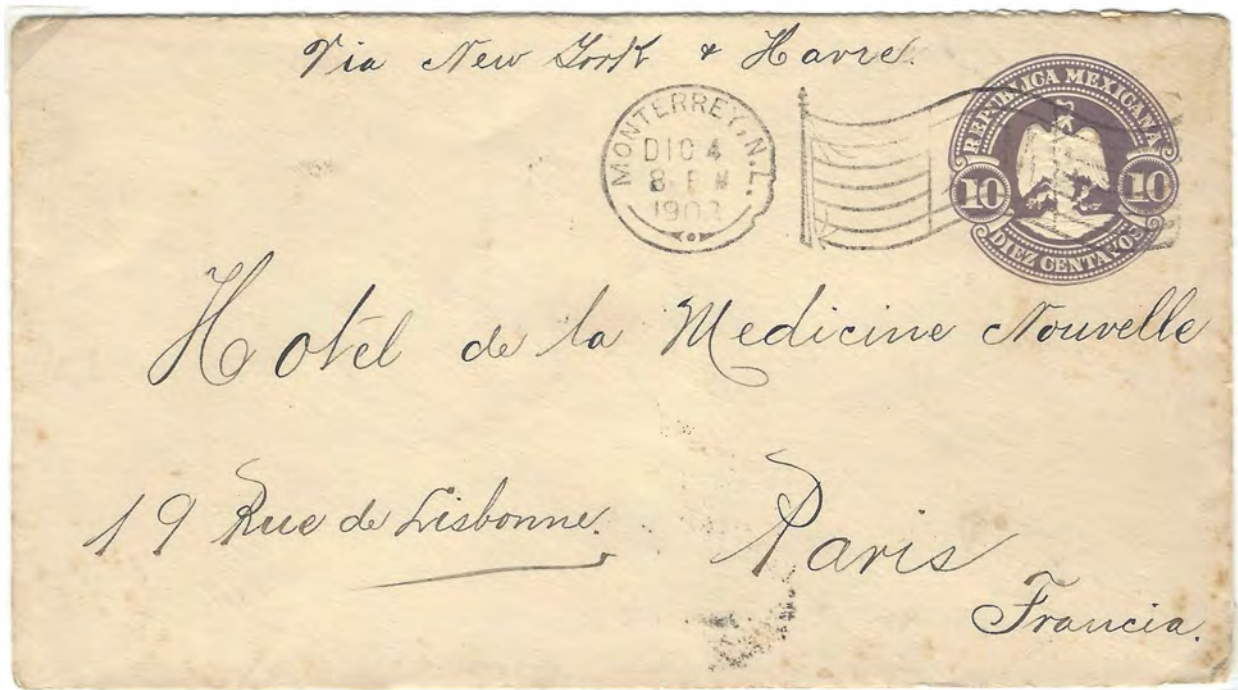 Via New York & Havre.
MONTERREY, N.L.
DIC 4
8 - P M
1903
REPUBLICA MEXICANA
10 10
DIEZ CENTAVOS
Hotel de la Medicine Nouvelle
19 Rue de Lisbonne.
Paris
Francia.